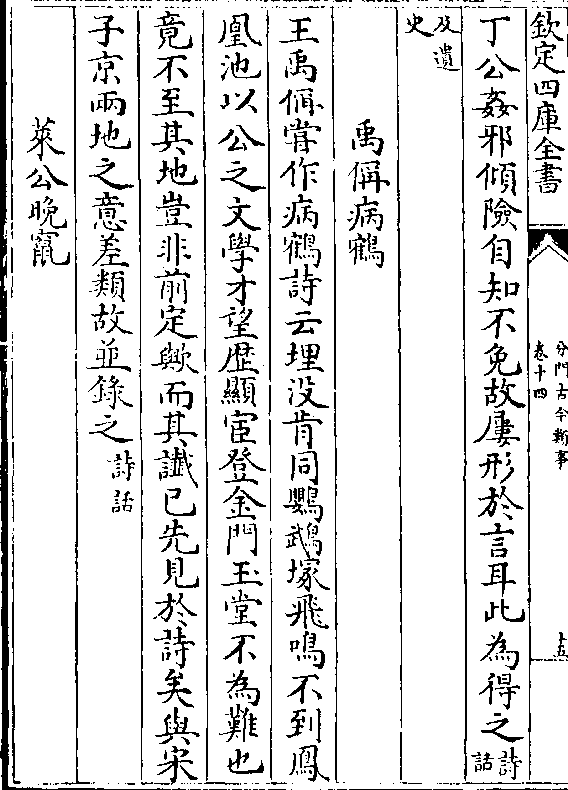 欽定四庫全書
分門古今類事
卷十四
十五
丁公姦邪傾險自知不免故屢形於言耳此為得之詩話
及遺史
禹偁病鶴
王禹偁嘗作病鶴詩云埋没肯同鸚鵡塚飛鳴不到鳳
凰池以公之文學才望歴顯宦登金門玉堂不為難也
竟不至其地豈非前定歟而其讖已先見於詩矣與宋
子京兩地之意差類故並錄之詩話
萊公晚竄